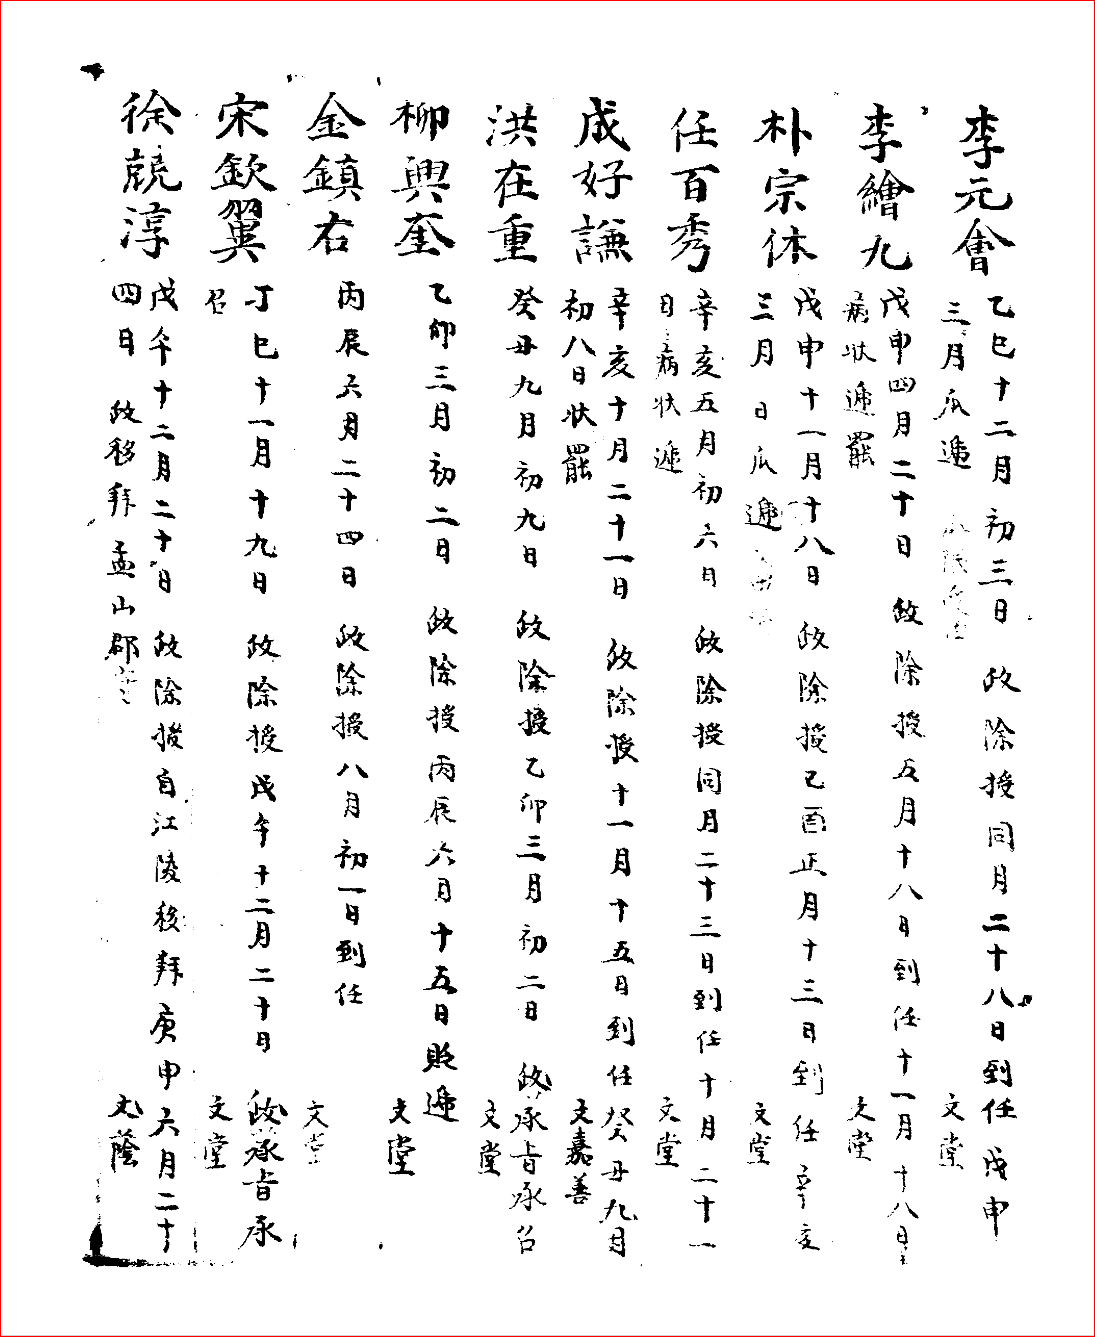 李元會
乙巳十二月初三日 政除授同月二十八日到任戊申
三月瓜遞
文堂
李繪九
戊申四月二十日 政除授五月十八日到任十一月十八日
病狀遞罷
文堂
朴宗休
戊申十一月十八日 政除授己酉正月十三日到任辛亥
三月 日瓜遞
文堂
任百秀
辛亥五月初六日 政除授同月二十三日到任十月二十一
日病狀遞
文堂
成好謙
辛亥十月二十一日 政除授十一月十五日到任癸丑九月
初八日狀罷
文嘉善
洪在重
癸丑九月初九日 政除授乙卯三月初二日 政承旨承召
文堂
柳興奎
乙卯三月初二日 政除授丙辰六月十五日貶遞
文堂
金鎮右
丙辰六月二十四日 政除授八月初一日到任
文堂
宋欽翼
丁巳十一月十九日 政除授戊午十二月二十日 政承旨承
召
文堂
徐兢淳
戊午十二月二十日 政除授自江陵移拜庚申六月二十
四日 政移拜孟山郡
文蔭